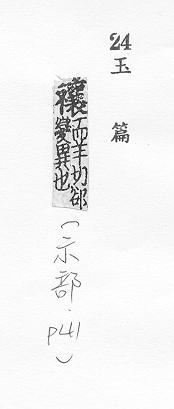 24 玉篇
禳 而羊切郤
變異也
(示部.p41)